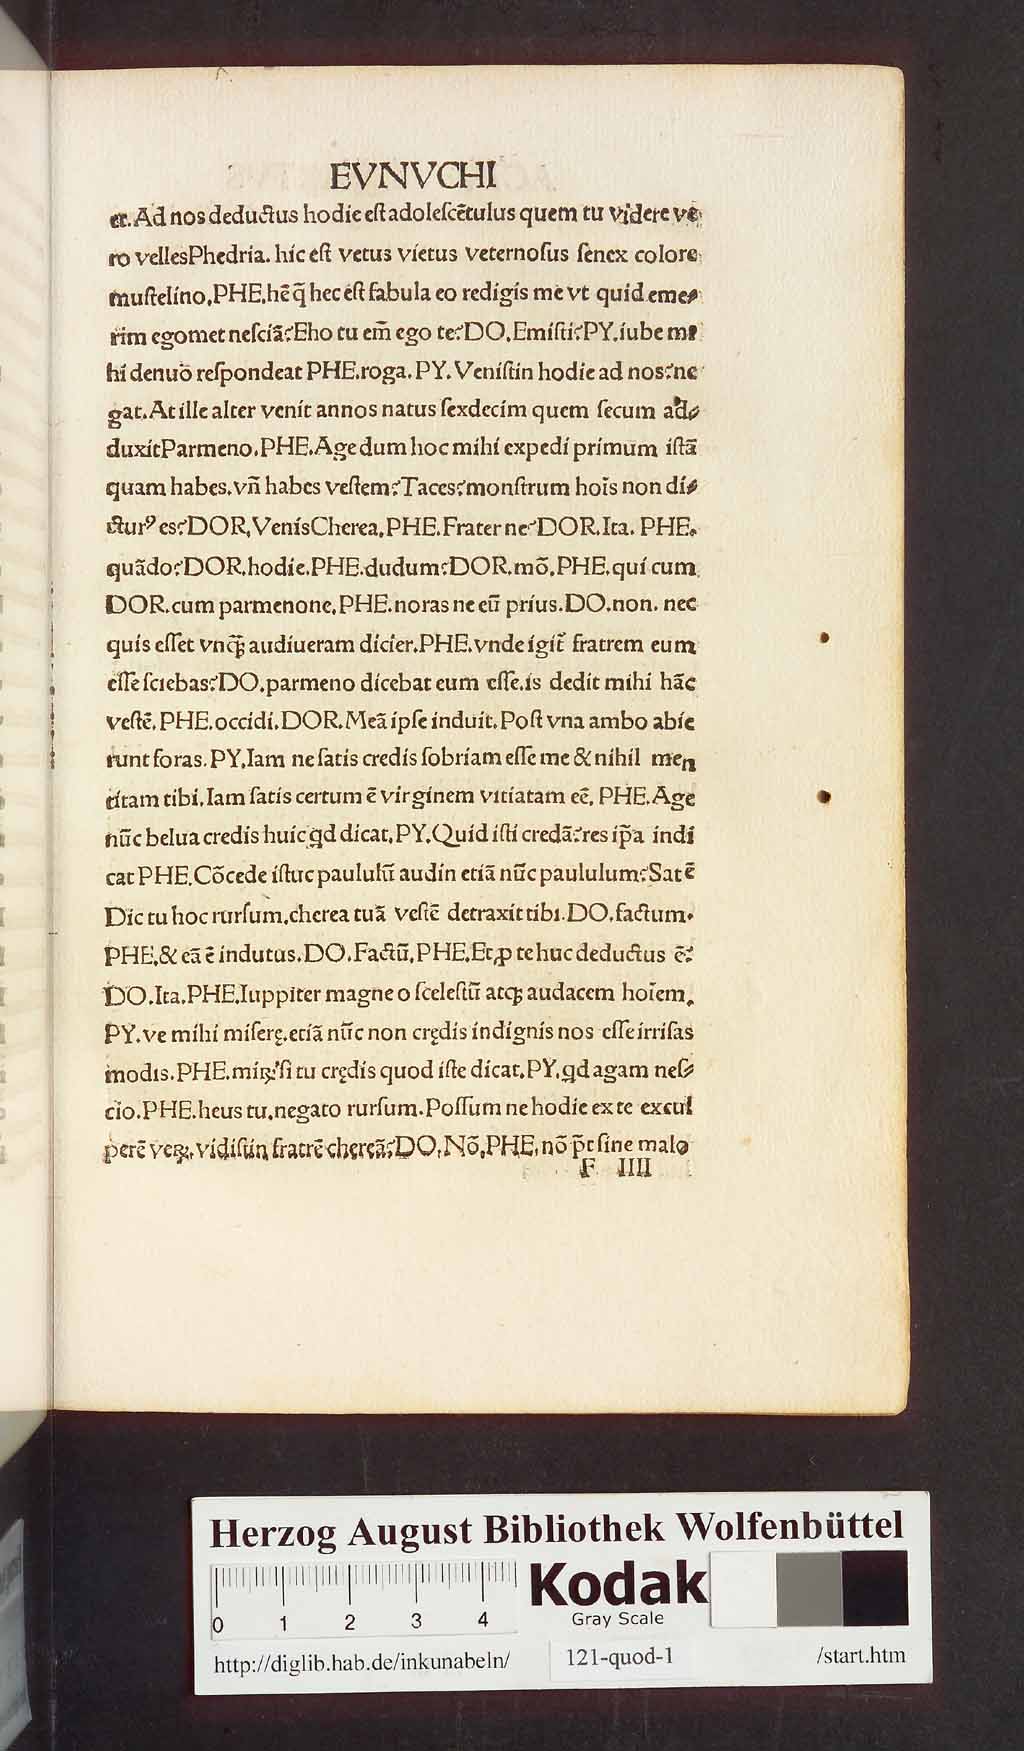 EVNVCHI
er. Ad nos deductus hodie eſt adoleſcẽtulus quem tu videre ve
ro velles Phedria. hic eſt vetus vietus veternoſus ſenex colore
muſtelino. PHE. hẽ q̃ hec eſt fabula eo redigis me vt quid eme⸗
rim egomet neſciã? Eho tu em̃ ego te? DO. Emiſti? PY. iube mi
hi denuo reſpondeat PHE. roga. PY. Veniſtin hodie ad nos? ne
gat. At ille alter venit annos natus ſexdecim quem ſecum ad⸗
duxit Parmeno. PHE. Age dum hoc mihi expedi primum iſtã
quam habes. vñ habes veſtem? Taces? monſtrum hoĩs non di⸗
cturꝰ es? DOR. Venis Cherea. PHE. Frater ne? DOR. Ita. PHE.
quãdo? DOR. hodie. PHE. dudum? DOR. mõ. PHE. qui cum
DOR. cum parmenone. PHE. noras ne eũ prius. DO. non. nec
quis eſſet vnqꝫ audiueram dicier. PHE. vnde igit̃ fratrem eum
eſſe ſciebas? DO. parmeno dicebat eum eſſe. is dedit mihi hãc
veſtẽ. PHE. occidi. DOR. Meã ipſe induit. Poſt vna ambo abie
runt foras. PY. Iam ne ſatis credis ſobriam eſſe me & nihil men
titam tibi. Iam ſatis certum ẽ virginem vitiatam eẽ. PHE. Age
nũc belua credis huic qd dicat. PY. Quid iſti credã? res ip̃a indi
cat PHE. Cõcede iſtuc paululũ audin etiã nũc paululum? Sat ẽ
Dic tu hoc rurſum. cherea tuã veſtẽ detraxit tibi. DO. factum.
PHE. & eã ẽ indutus. DO. Factũ. PHE. Et ꝓ te huc deductus ẽ?
DO. Ita. PHE. Iuppiter magne o ſceleſtũ atqꝫ audacem hoĩem.
PY. ve mihi miſerę. etiã nũc non crędis indignis nos eſſe irriſas
modis. PHE. miꝝ ſi tu crędis quod iſte dicat. PY. qd agam neſ⸗
cio. PHE. heus tu. negato rurſum. Poſſum ne hodie ex te excul
perẽ veꝝ. vidiſtin fratrẽ chereã? DO. Nõ. PHE. nõ p̃t ſine malo
F IIII
Herzog August Bibliothek Wolfenbüttel
0 1 2 3 4
Kodak
Gray Scale
http://diglib.hab.de/inkunabeln/ 121-quod-1 /start.htm